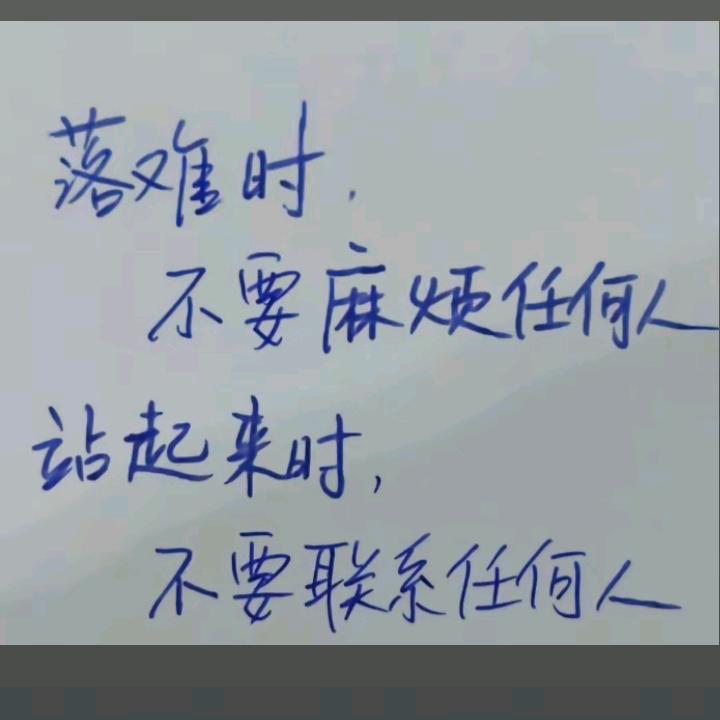 落难时.
不要麻烦任何人
站起来时,
不要联系任何人